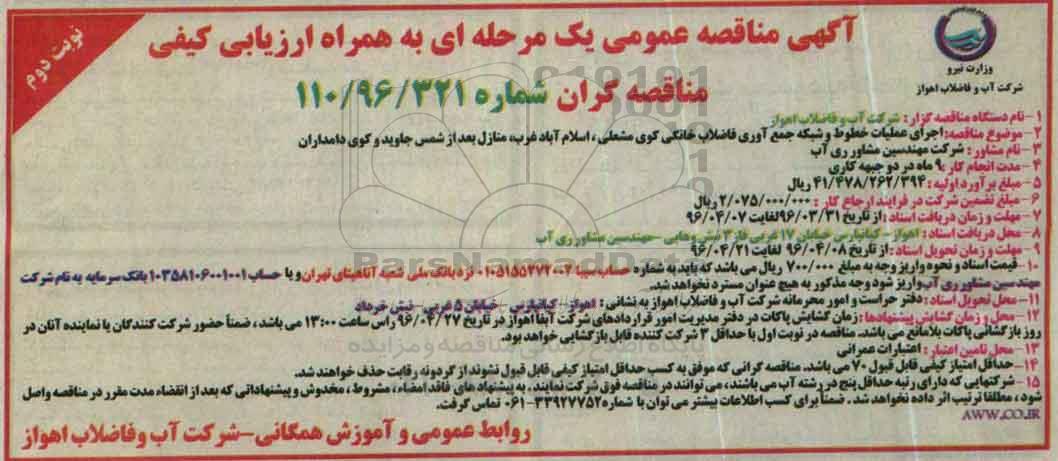 نوبت دوم
وزارت نیرو
شرکت آب و فاضلاب اهواز
آگهی مناقصه عمومی یک مرحله ای به همراه ارزیابی کیفی
مناقصه گران شماره ۱۱۰/۹۶/۳۲۱
۱- نام دستگاه مناقصه گزار: شرکت آب و فاضلاب اهواز
۲- موضوع مناقصه: اجرای عملیات خطوط و شبکه جمع آوری فاضلاب خانگی کوی مشعلی، اسلام آباد غرب، منازل بعد از شمس جاوید و کوی دامداران
۳- نام مشاور: شرکت مهندسین مشاور ری آب
۴- مدت انجام کار: ۹ ماه در دو جبهه کاری
۵- مبلغ برآورد اولیه: ۴۱/۴۷۸/۲۶۲/۳۹۴ ریال
۶- مبلغ تضمین شرکت در فرایند ارجاع کار: ۲/۰۷۵/۰۰۰/۰۰۰ ریال
۷- مهلت و زمان دریافت اسناد: از تاریخ ۹۶/۰۳/۳۱ لغایت ۹۶/۰۴/۰۷
۸- محل دریافت اسناد: اهواز- کیانپارس خیابان ۱۷ غربی فاز ۳ نبش وهابی - مهندسین مشاور ری آب
۹- مهلت و زمان تحویل اسناد: از تاریخ ۹۶/۰۴/۰۸ لغایت ۹۶/۰۴/۲۱
۱۰- قیمت اسناد و نحوه واریز وجه به مبلغ ۷۰۰/۰۰۰ ریال می باشد که باید به شماره حساب سیبا ۰۱۰۵۱۵۵۳۷۲۰۰۲ نزد بانک ملی شعبه آناهیتای تهران و یا حساب ۱۰۳۵۸۱۰۶۰۰۱۰۰۱ بانک سرمایه به نام شرکت
مهندسین مشاور ری آب واریز شود وجه مذکور به هیچ عنوان مسترد نخواهد شد.
۱۱- محل تحویل اسناد: دفتر حراست و امور محرمانه شرکت آب و فاضلاب اهواز به نشانی: اهواز- کیانپارس - خیابان ۵ غربی- نبش خرداد
۱۲- محل و زمان گشایش پیشنهادها: زمان گشایش پاکات در دفتر مدیریت امور قراردادهای شرکت آبفا اهواز در تاریخ ۹۶/۰۴/۲۷ راس ساعت ۱۳:۰۰ می باشد، ضمناً حضور شرکت کنندگان یا نماینده آنان در
روز بازگشائی پاکات بلامانع می باشد. مناقصه در نوبت اول با حداقل ۳ شرکت کننده قابل بازگشایی خواهد بود.
۱۳- محل تامین اعتبار: اعتبارات عمرانی
۱۴- حداقل امتیاز کیفی قابل قبول ۷۰ می باشد. مناقصه گرانی که موفق به کسب حداقل امتیاز کیفی قابل قبول نشوند از گردونه رقابت حذف خواهند شد.
۱۵- شرکتهایی که دارای رتبه حداقل پنج در رشته آب می باشند، می توانند در مناقصه فوق شرکت نمایند. به پیشنهاد های فاقد امضاء، مشروط، مخدوش و پیشنهاداتی که بعد از انقضاء مدت مقرر در مناقصه واصل
شود، مطلقا ترتیب اثر داده نخواهد شد. ضمناً برای کسب اطلاعات بیشتر می توان با شماره ۳۳۹۲۷۷۵۲-۰۶۱ تماس گرفت.
AWW.CO.IR
روابط عمومی و آموزش همگانی-شرکت آب و فاضلاب اهواز
ParsNamadData
پایگاه اطلاع رسانی مناقصه و مزایده